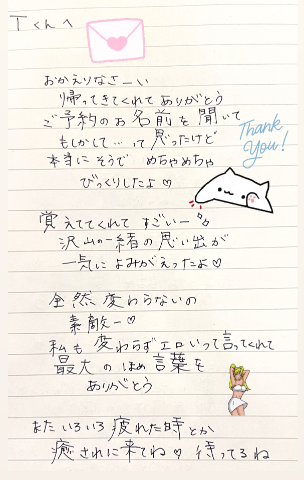 Tくんへ
おかえりなさーい
帰ってきてくれてありがとう
ご予約のお名前を聞いて
もしかして…って思ったけど
本当にそうで めちゃめちゃ
びっくりしたよ♡
Thank
You!
覚えててくれて すごいー✨
沢山の一緒の思い出が
一気によみがえったよ♡
全然変わらないの
素敵ー♡
私も変わらずエロいって言ってくれて
最大のほめ言葉を
ありがとう
またいろいろ疲れた時とか
癒されに来てね♡ 待ってるね